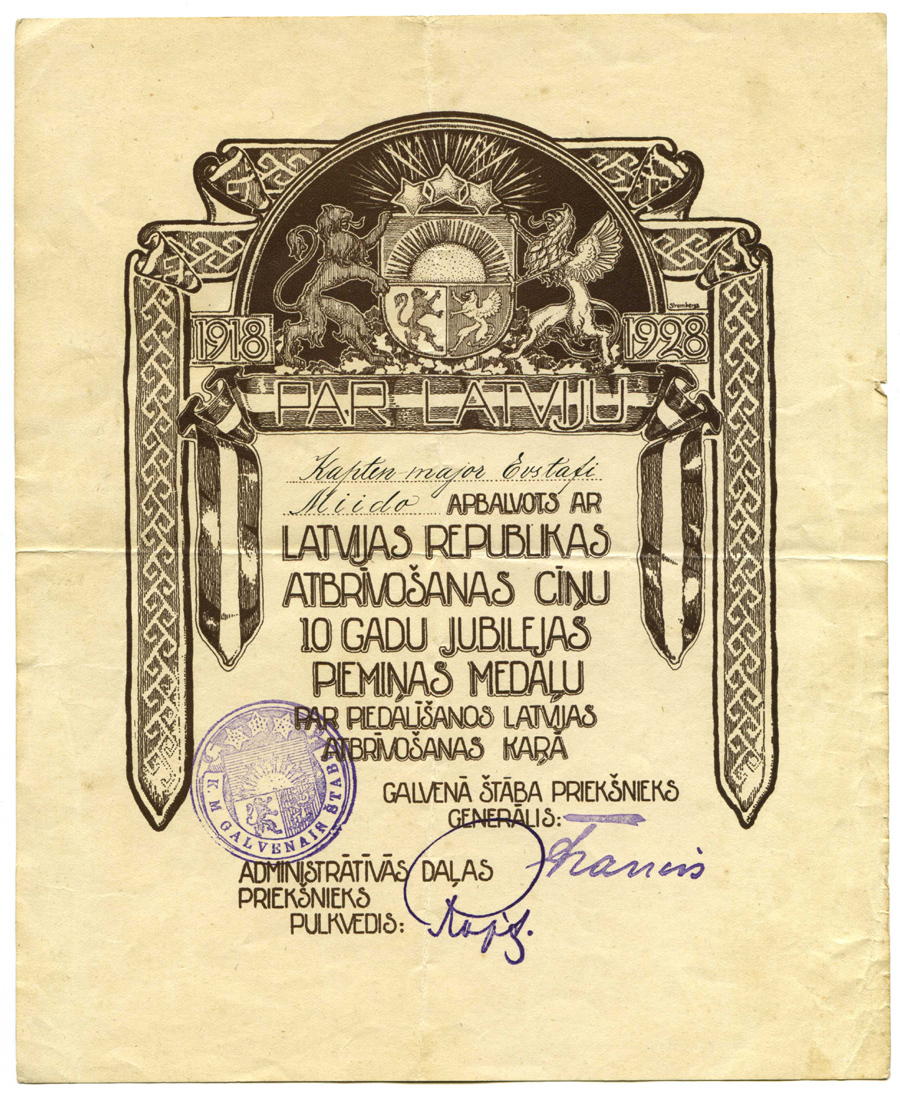 Stremberga
1918 1928
PAR LATVIJU
Kapten-major Evstafi
Miido APBALVOTS AR
LATVIJAS REPUBLIKAS
ATBRĪVOŠANAS CĪŅU
10 GADU JUBILEJAS
PIEMIŅAS MEDAĻU
PAR PIEDALĪŠANOS LATVIJAS
ATBRĪVOŠANAS KAŖĀ
K M GALVENAIS ŠTABS
GALVENĀ ŠTĀBA PRIEKŠNIEKS
ĢENERĀLIS:
ADMINISTRĀTĪVĀS DAĻAS
PRIEKŠNIEKS
PULKVEDIS: